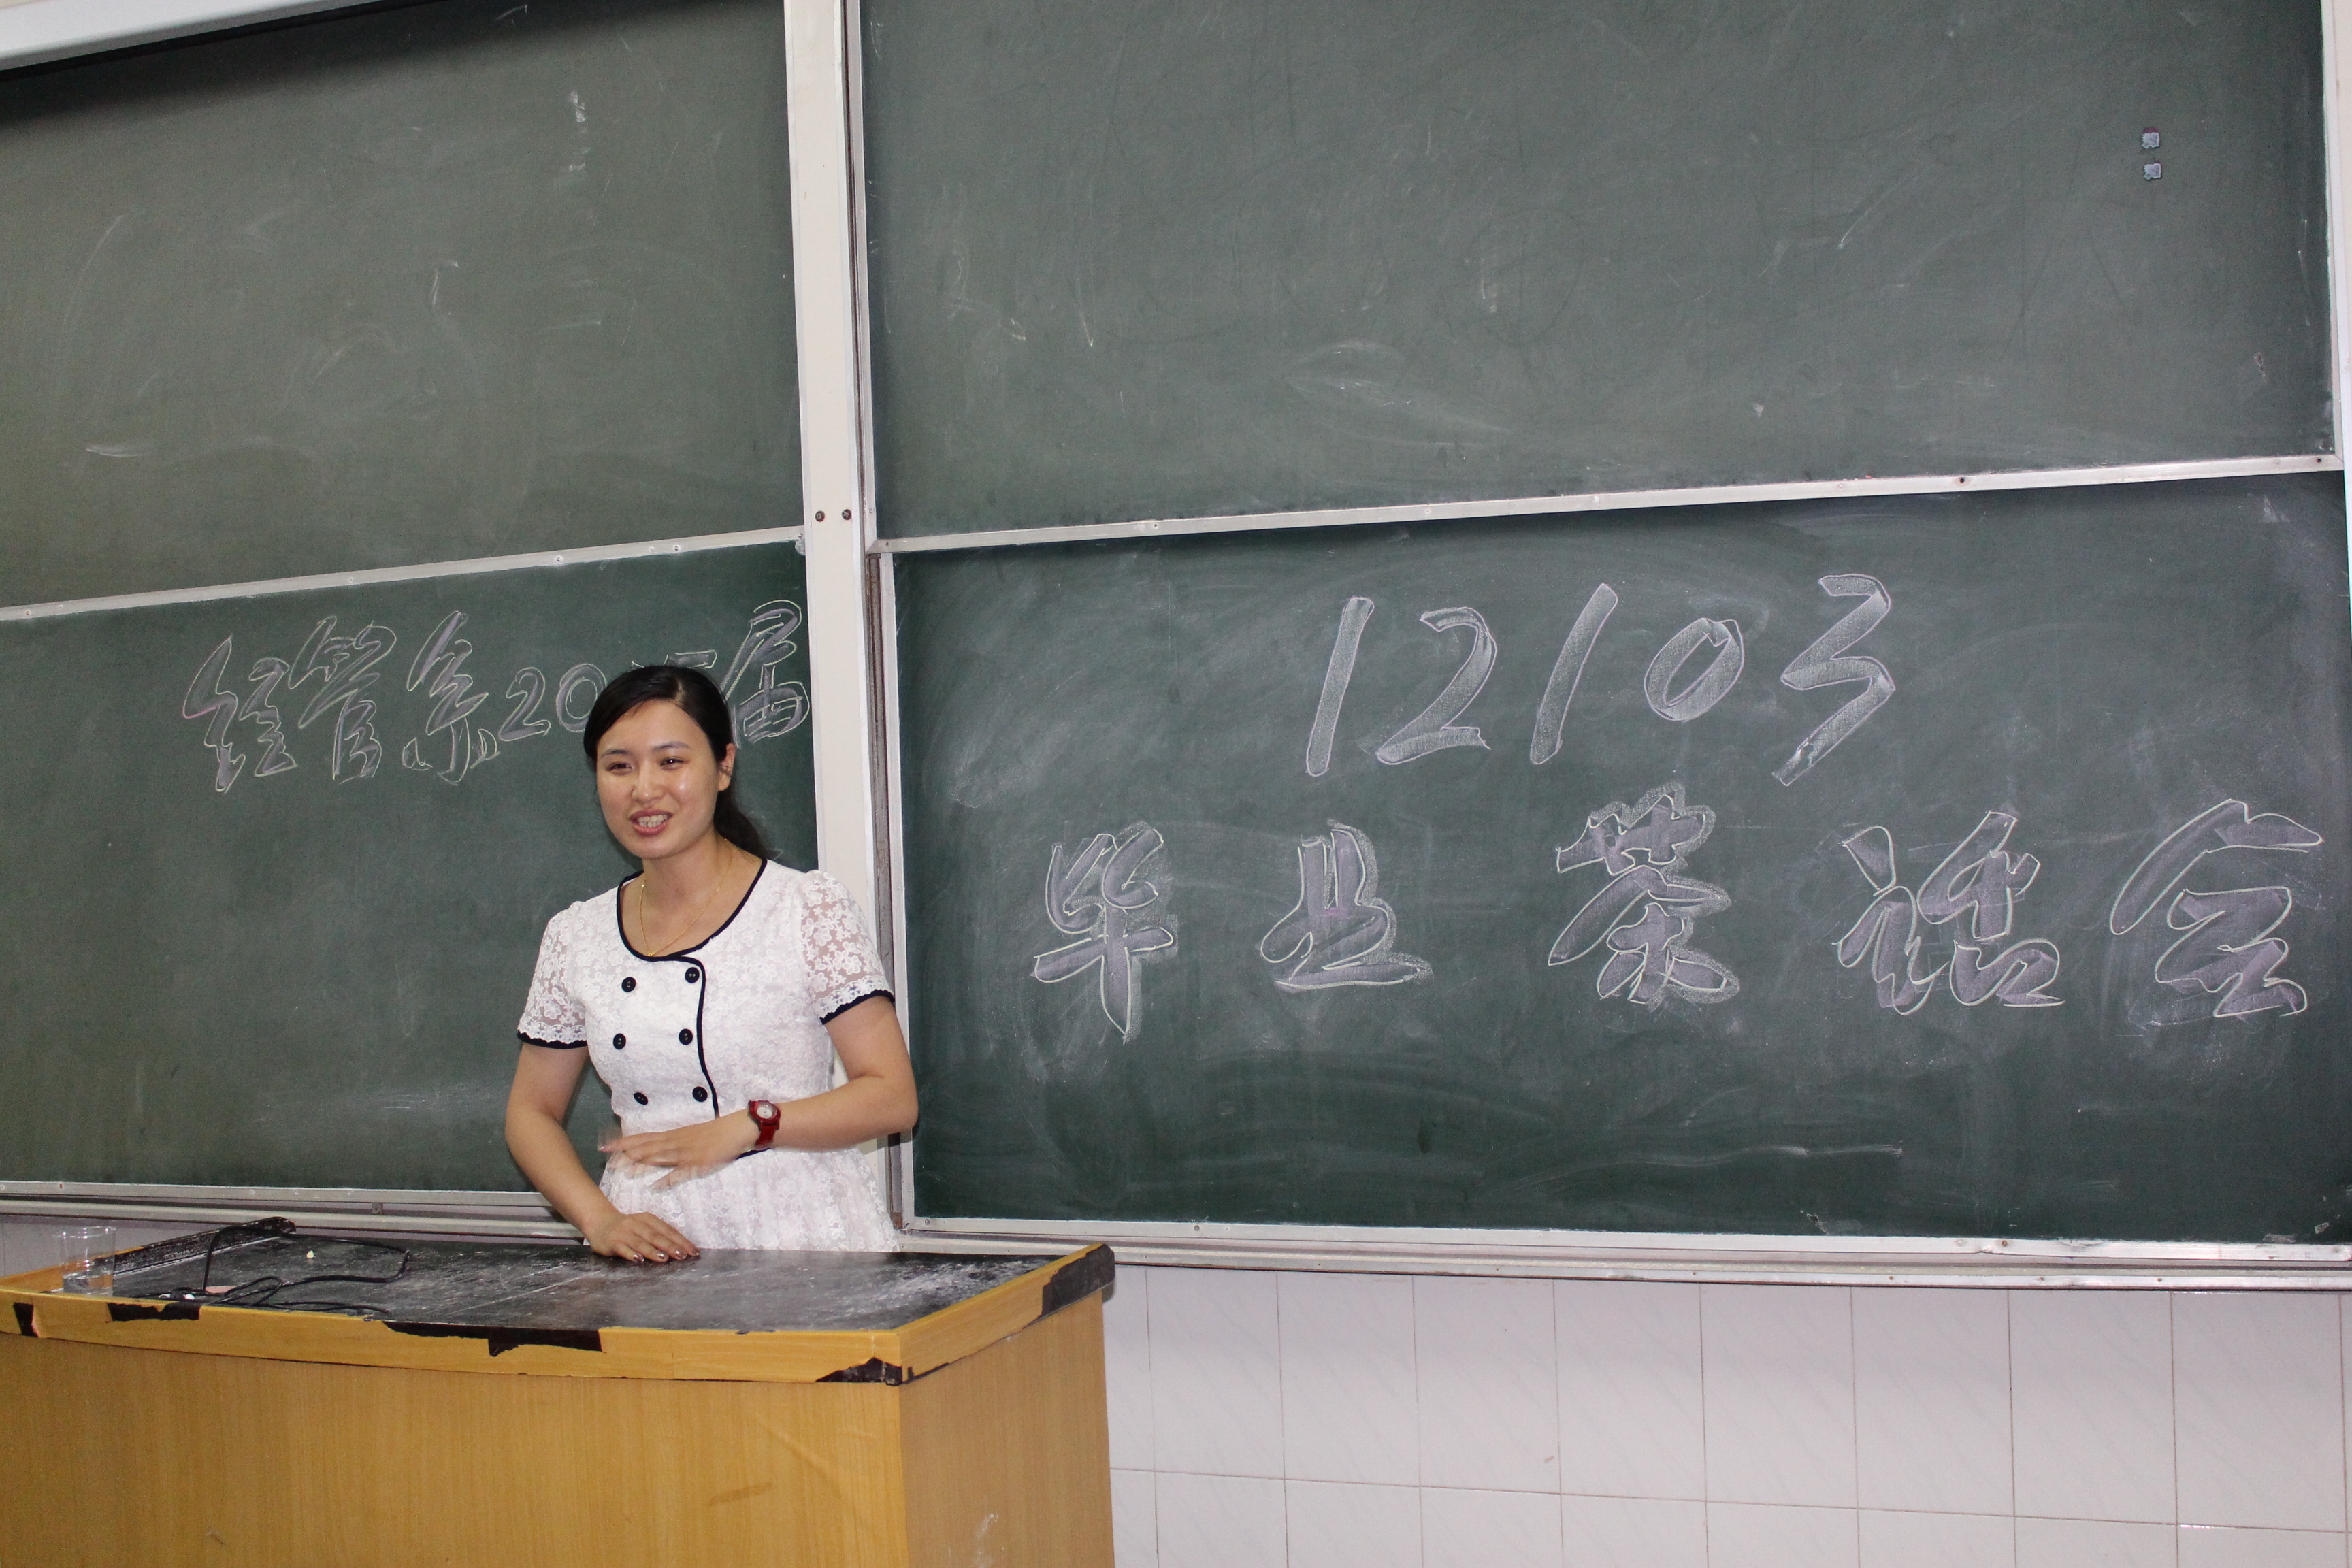 经管系20 届
12103
毕业茶话会